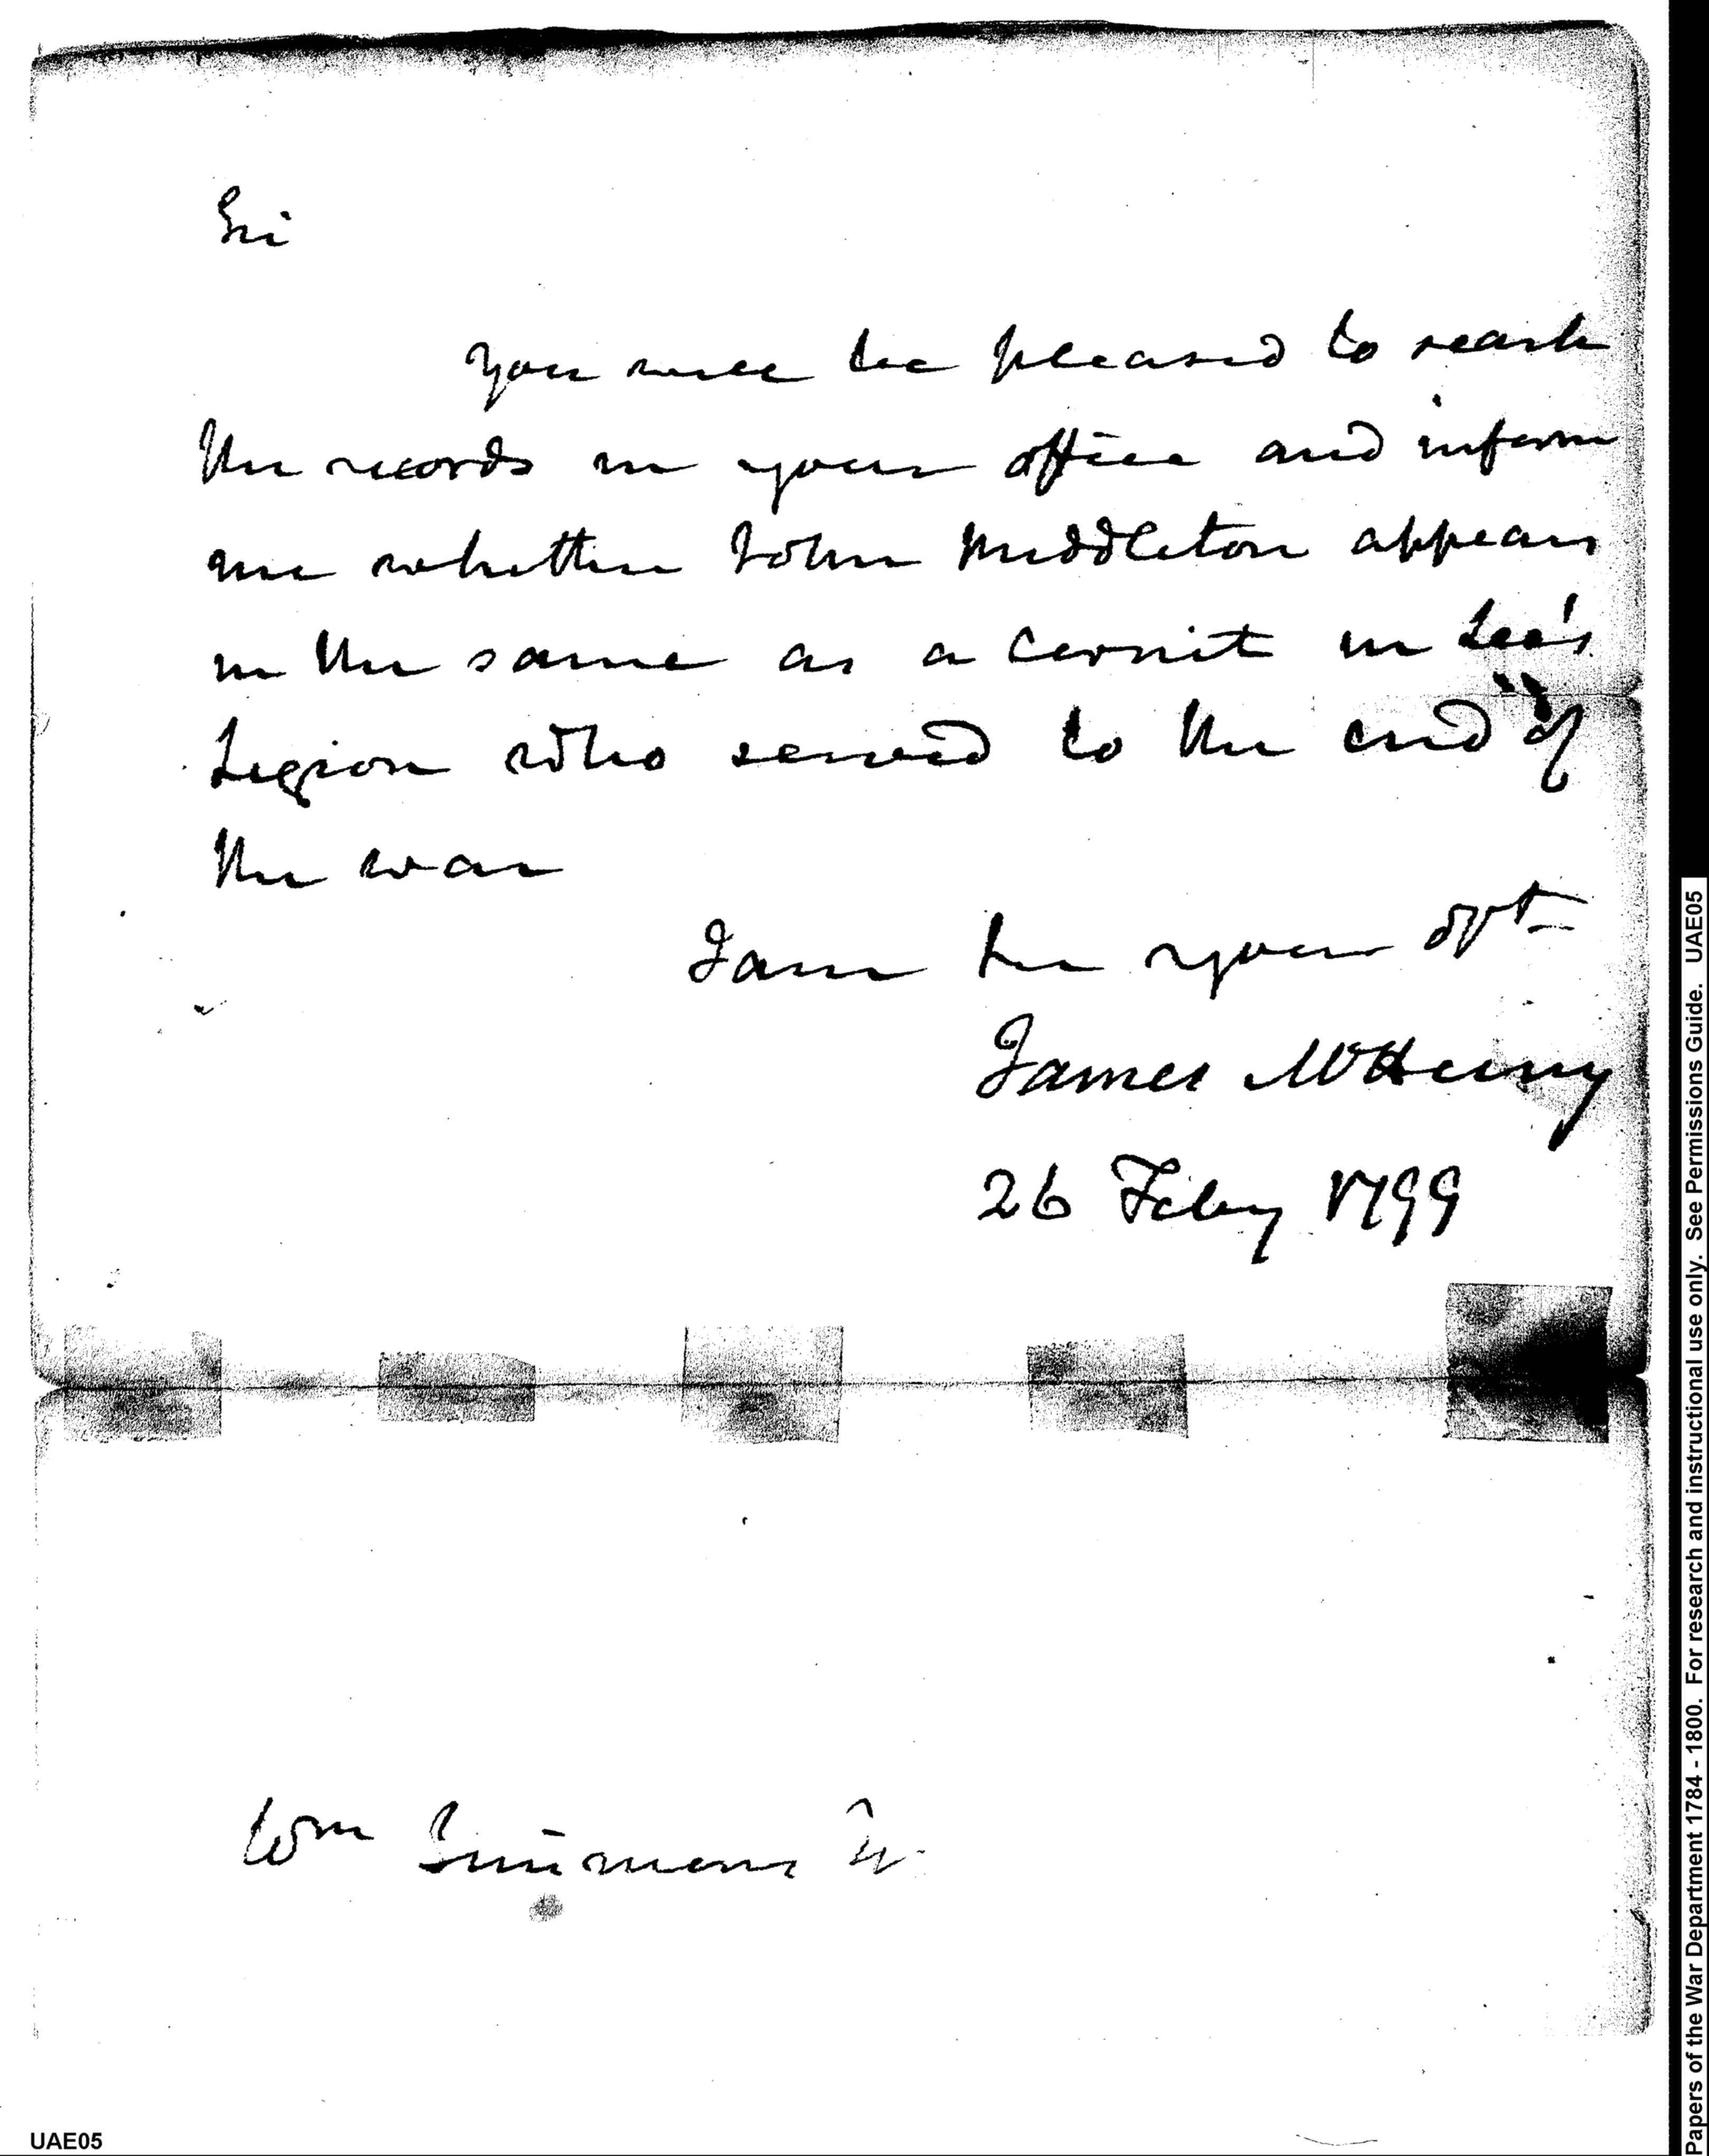 Sir
You will be pleased to search
the records in your office and inform
me whether John Middleton appears
in the same as a Cornet in Lee's
Legion who served to the end of
the war
I am Sir your obt
James McHenry
26 Feby 1799
Wm Simmons
UAE05
Papers of the War Department 1784 - 1800. For research and instructional use only. See Permissions Guide. UAE05